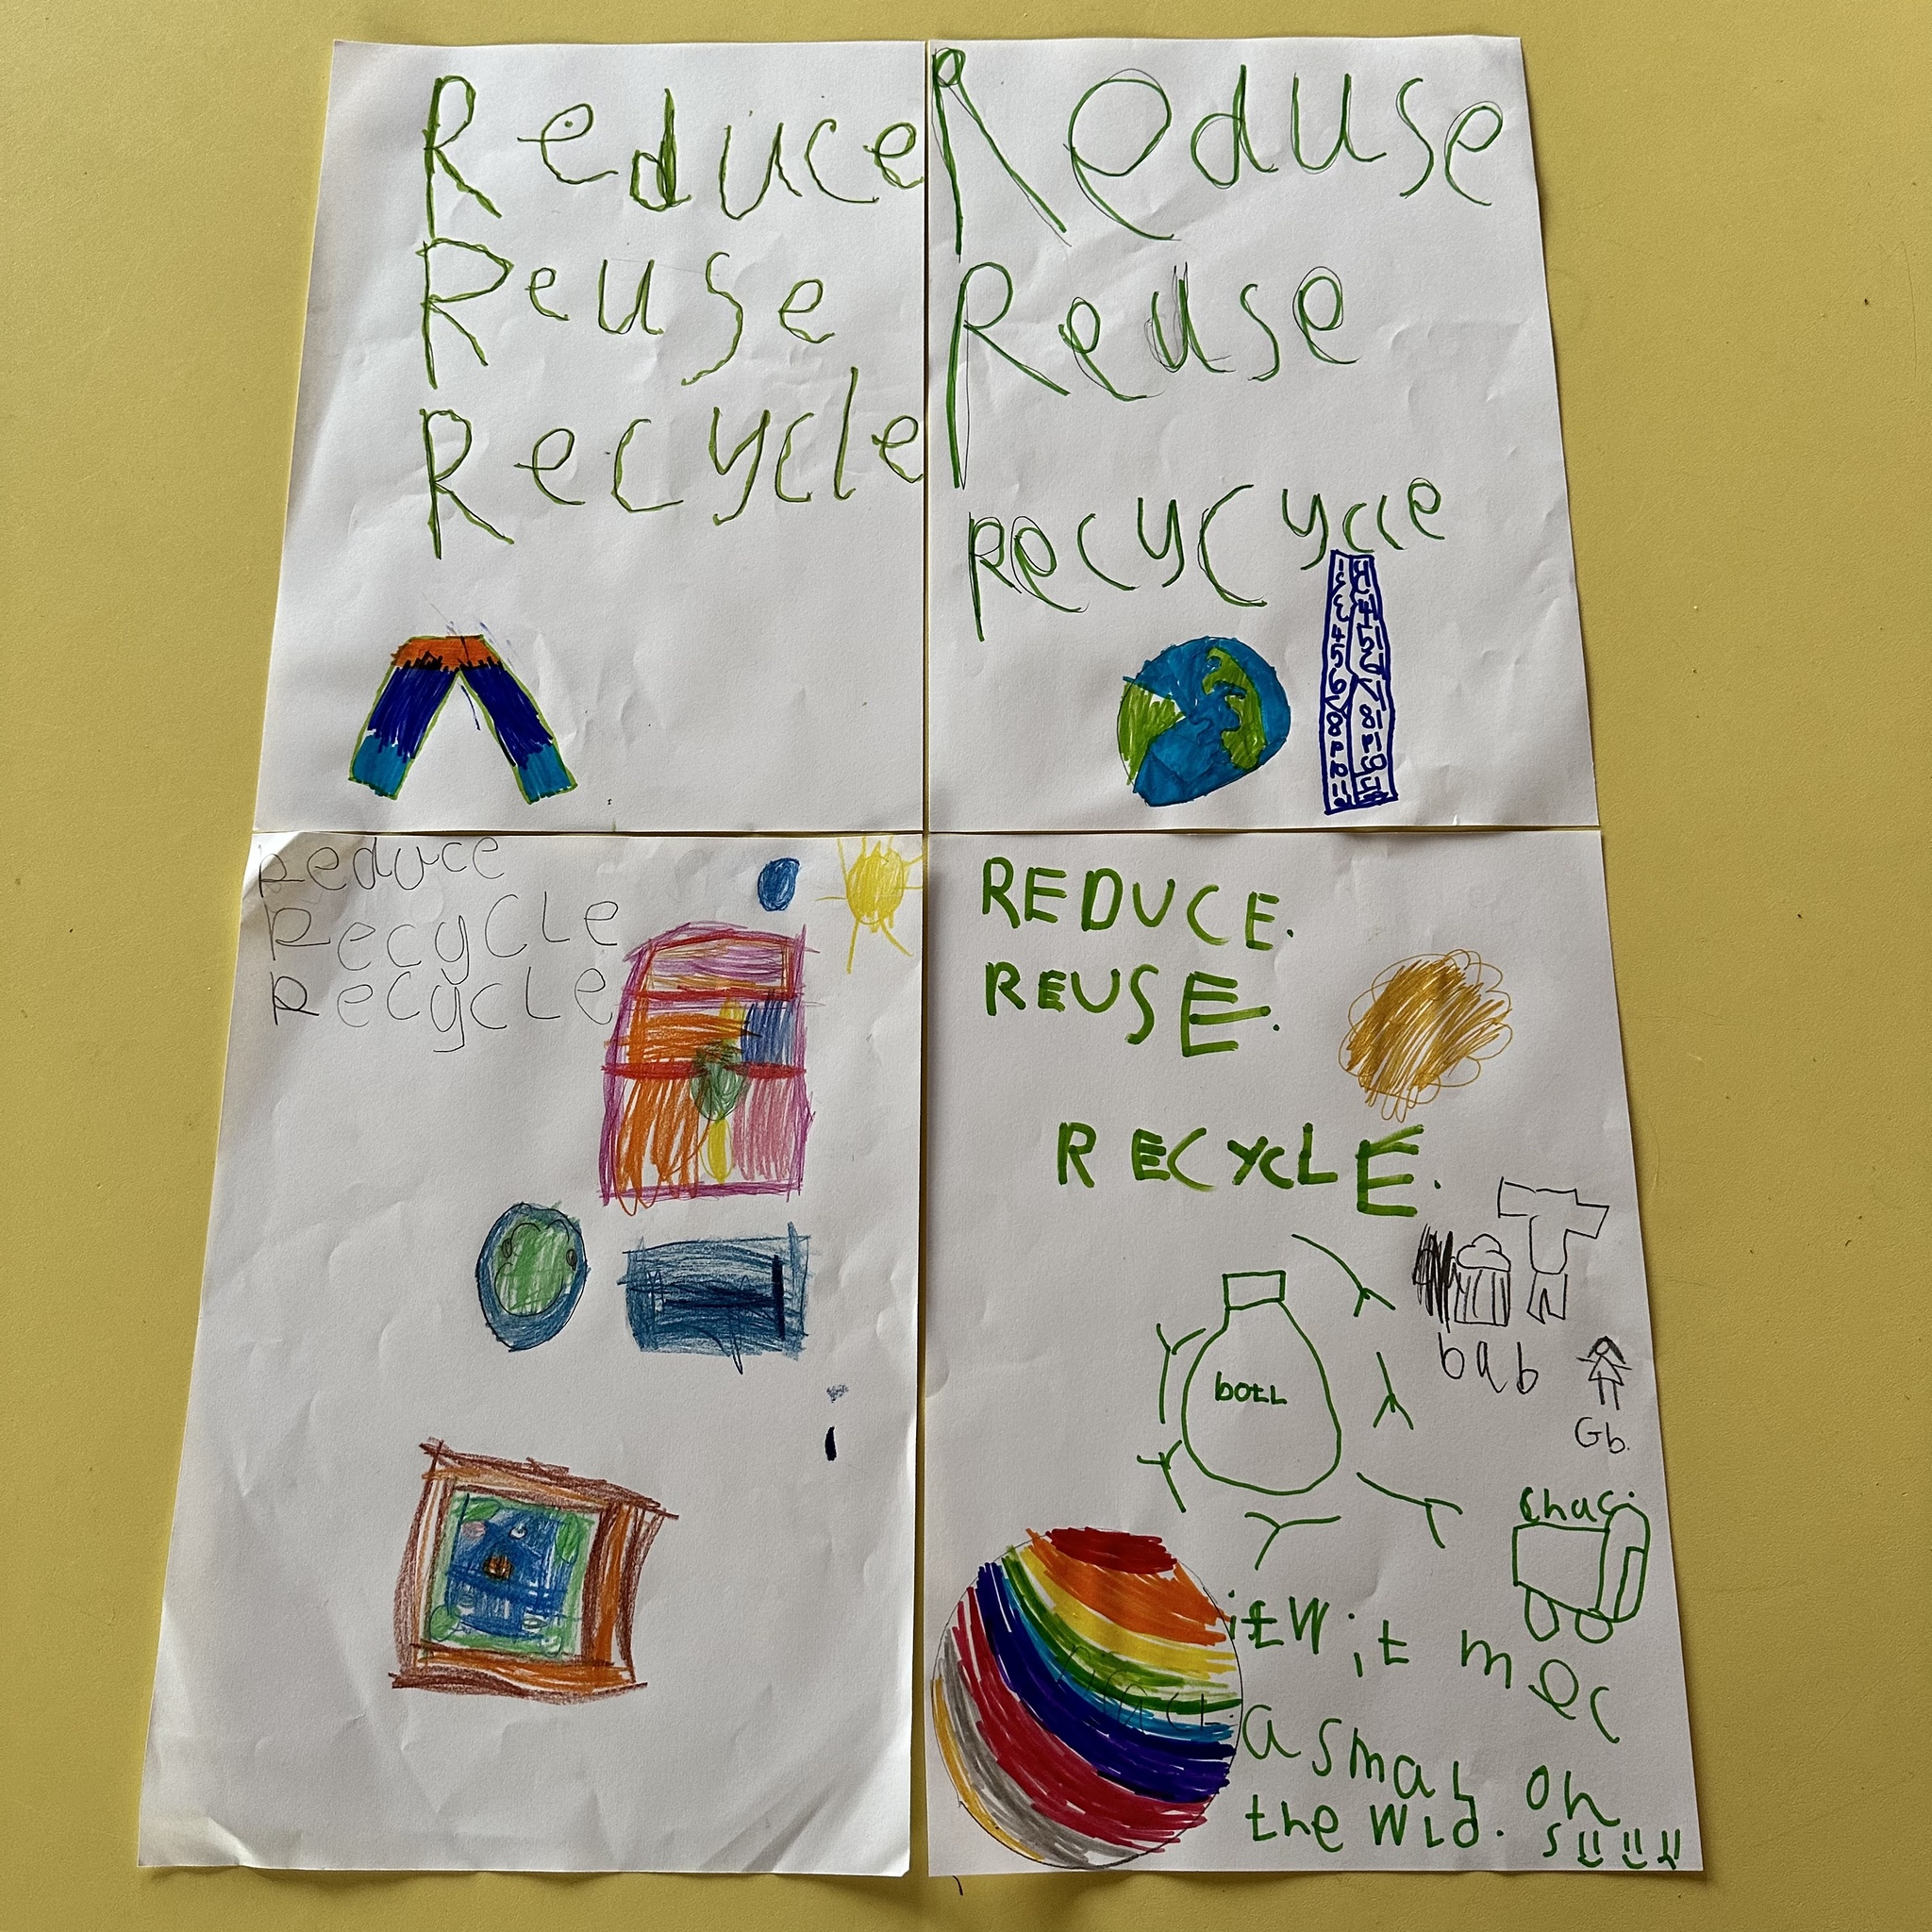 Reduce
Reuse
Recycle
Reduse
Reuse
Recycycle
Reduce
Recycle
Recycle
REDUCE.
REUSE.
RECYCLE.
bab
botL
Gb.
itwit mec
a smaL on
the wLd.